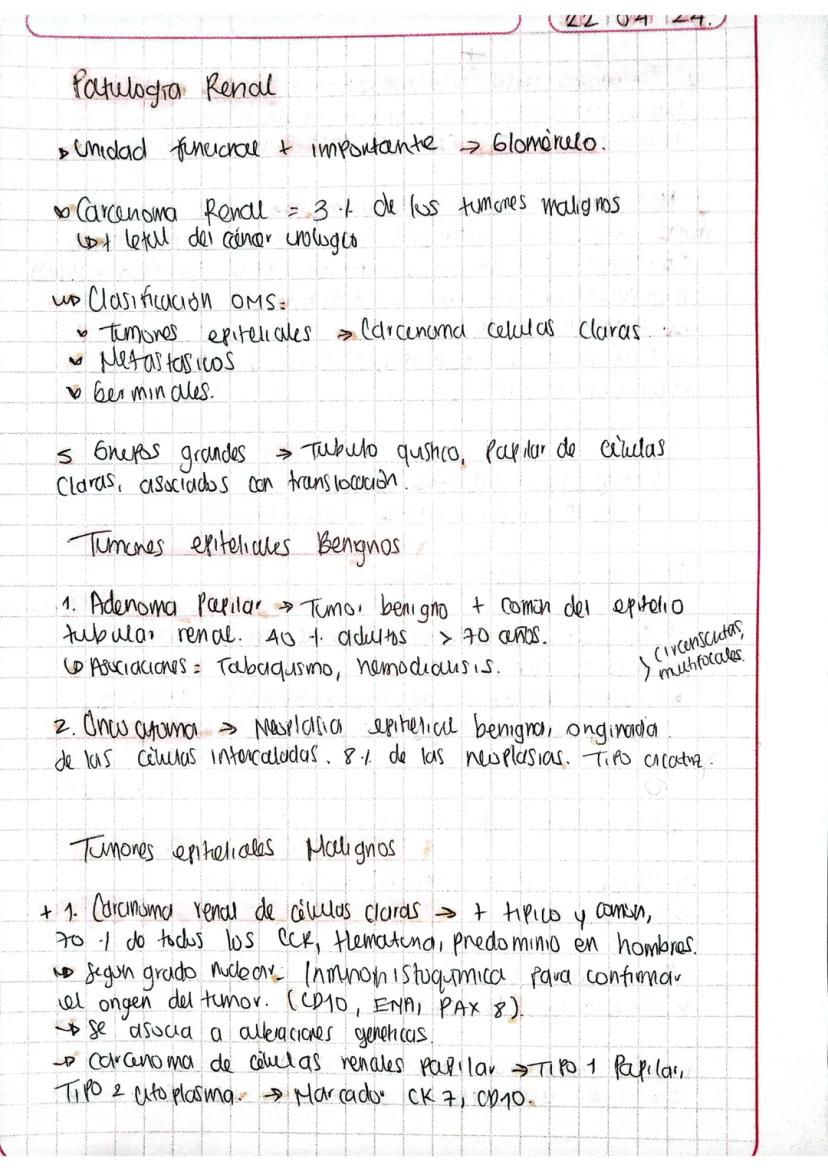 22 | 04 | 24.
Patología Renal
Unidad funcional + importante → Glomérulo.
Carcenoma Renal = 3 % de los tumores malignos
↳ + letal del cáncer urologico
Clasificación OMS:
Tumores epiteliales → Carcenoma celulas claras.
Metastasicos
Germinales.
5 Grupos grandes → Tubulo quístico, Papilar de células
Claras, asociados con translocación.
Tumores epiteliales Benignos
1. Adenoma Papilar → Tumor benigno + común del epitelio
tubular renal. 40 % adultos > 70 años.
↳ Asociaciones = Tabaquismo, hemodialisis.
> circunscritas,
multifocales.
2. Oncocytoma → Neoplasia epitelial benigna, originada
de las células intercaladas. 8 % de las neoplasias. Tipo cicatriz.
Tumores epiteliales Malignos
+ 1. Carcinoma renal de células claras → + típico y común,
70 % de todos los CCR, Hematuria, predominio en hombres.
Según grado nuclear. Inmunohistoquímica para confirmar
el origen del tumor. (CD10, EMA, PAX 8).
→ Se asocia a alteraciones genéticas.
→ Carcenoma de células renales papilar → TIPO 1 Papilar,
TIPO 2 citoplasma. → Marcador CK7, CD10.